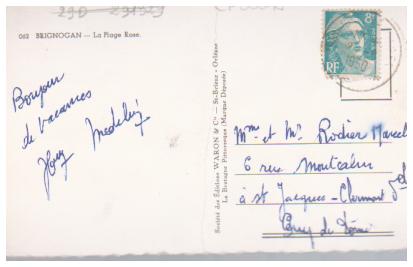 290
062 BRIGNOGAN — La Plage Rose.
8F
RF
1950
Bonjour
de Vacances
Société des Éditions WARON & Cie — St-Brieuc - Orléans
La Bretagne Pittoresque (Marque Déposée)
Mme et Mr Rodier Marcel
6 rue Montcalm
à St Jacques - Clermont Fd
Puy de Dôme